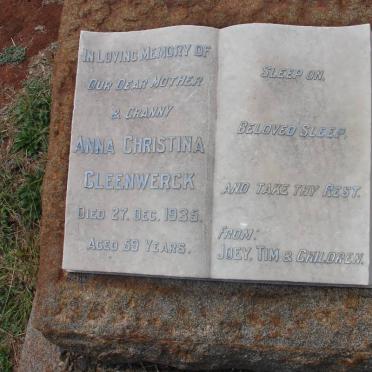 In Loving Memory of
Our Dear Mother
& Granny
Anna Christina
Gleenwerck
Died 27. Dec. 1935.
Aged 69 Years.
Sleep on,
Beloved Sleep,
and take thy Rest.
From:
Joey, Tim & Children.